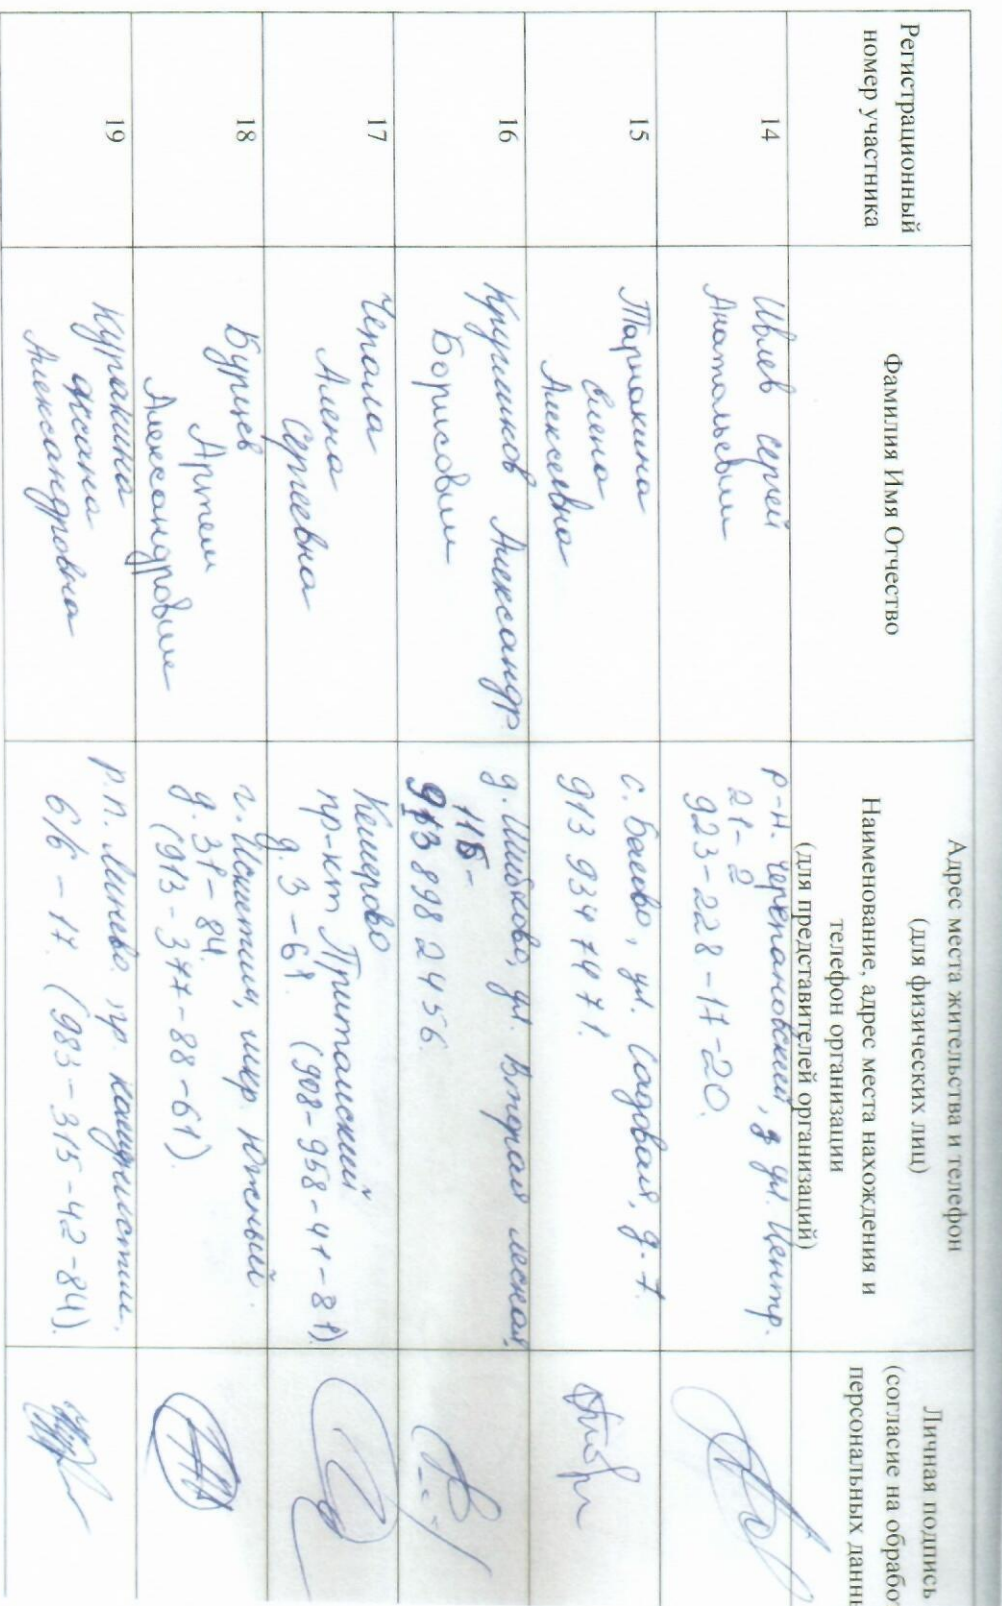 Регистрационный
номер участника
Фамилия Имя Отчество
Адрес места жительства и телефон
(для физических лиц)
Наименование, адрес места нахождения и
телефон организации
(для представителей организаций)
Личная подпись
(согласие на обработ
персональных данны
14
Ивлев Сергей
Анатольевич
р-н. Черепановский, ул. Центр.
21-2
923-228-17-20.
15
Парнакина
Елена
Алексеевна
с. Баево, ул. Садовая, д. 7.
913 934 74 71.
16
Крушиков Александр
Борисович
д. Шибково, ул. Вторая лесная,
11Б-
913 898 2456.
17
Чепала
Алена
Сергеевна
Кемерово
пр-кт Притомский
д. 3-61. (908-958-41-81).
18
Бурцев
Артем
Александрович
г. Искитим, мкр. Южный.
д. 31-84.
(913-377-88-61).
19
Куракина
Оксана
Александровна
р.п. Линево, пр.
6/6-17. (983-315-42-84).